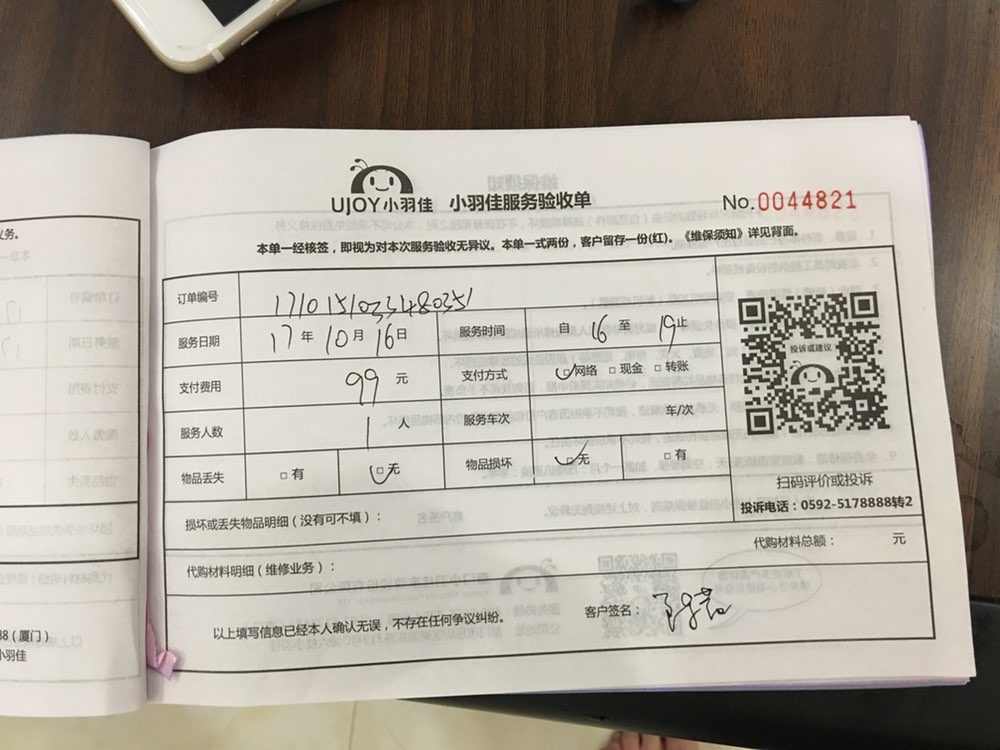 UJOY小羽佳 小羽佳服务验收单 No.0044821
本单一经核签，即视为对本次服务验收无异议。本单一式两份，客户留存一份(红)。《维保须知》详见背面。
订单编号 1710151033480351
服务日期 17年10月16日 服务时间 自16至19止
支付费用 99元 支付方式 □网络 □现金 □转账
服务人数 1人 服务车次 车/次
物品丢失 □有 □无 物品损坏 □无 □有
投诉或建议
扫码评价或投诉
投诉电话：0592-5178888转2
损坏或丢失物品明细（没有可不填）：
代购材料明细（维修业务）： 代购材料总额： 元
以上填写信息已经本人确认无误，不存在任何争议纠纷。 客户签名：
务。
38（厦门）
小羽佳